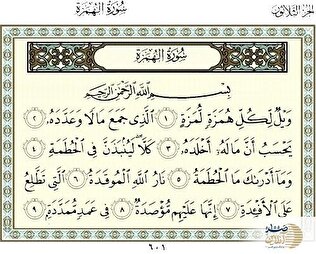 سُورَةُ الهُمَزَةِ
الجزء الثلاثون
سُورَةُ الهُمَزَةِ
بِسْمِ اللَّهِ الرَّحْمَٰنِ الرَّحِيمِ
وَيْلٌ لِّكُلِّ هُمَزَةٍ لُّمَزَةٍ ١ الَّذِى جَمَعَ مَالًا وَعَدَّدَهُ ٢
يَحْسَبُ أَنَّ مَالَهُ أَخْلَدَهُ ٣ كَلَّا لَيُنبَذَنَّ فِى الْحُطَمَةِ ٤
وَمَا أَدْرَىٰكَ مَا الْحُطَمَةُ ٥ نَارُ اللَّهِ الْمُوقَدَةُ ٦ الَّتِى تَطَّلِعُ
عَلَى الْأَفْـِٔدَةِ ٧ إِنَّهَا عَلَيْهِم مُّؤْصَدَةٌ ٨ فِى عَمَدٍ مُّمَدَّدَةٍ ٩
٦٠١